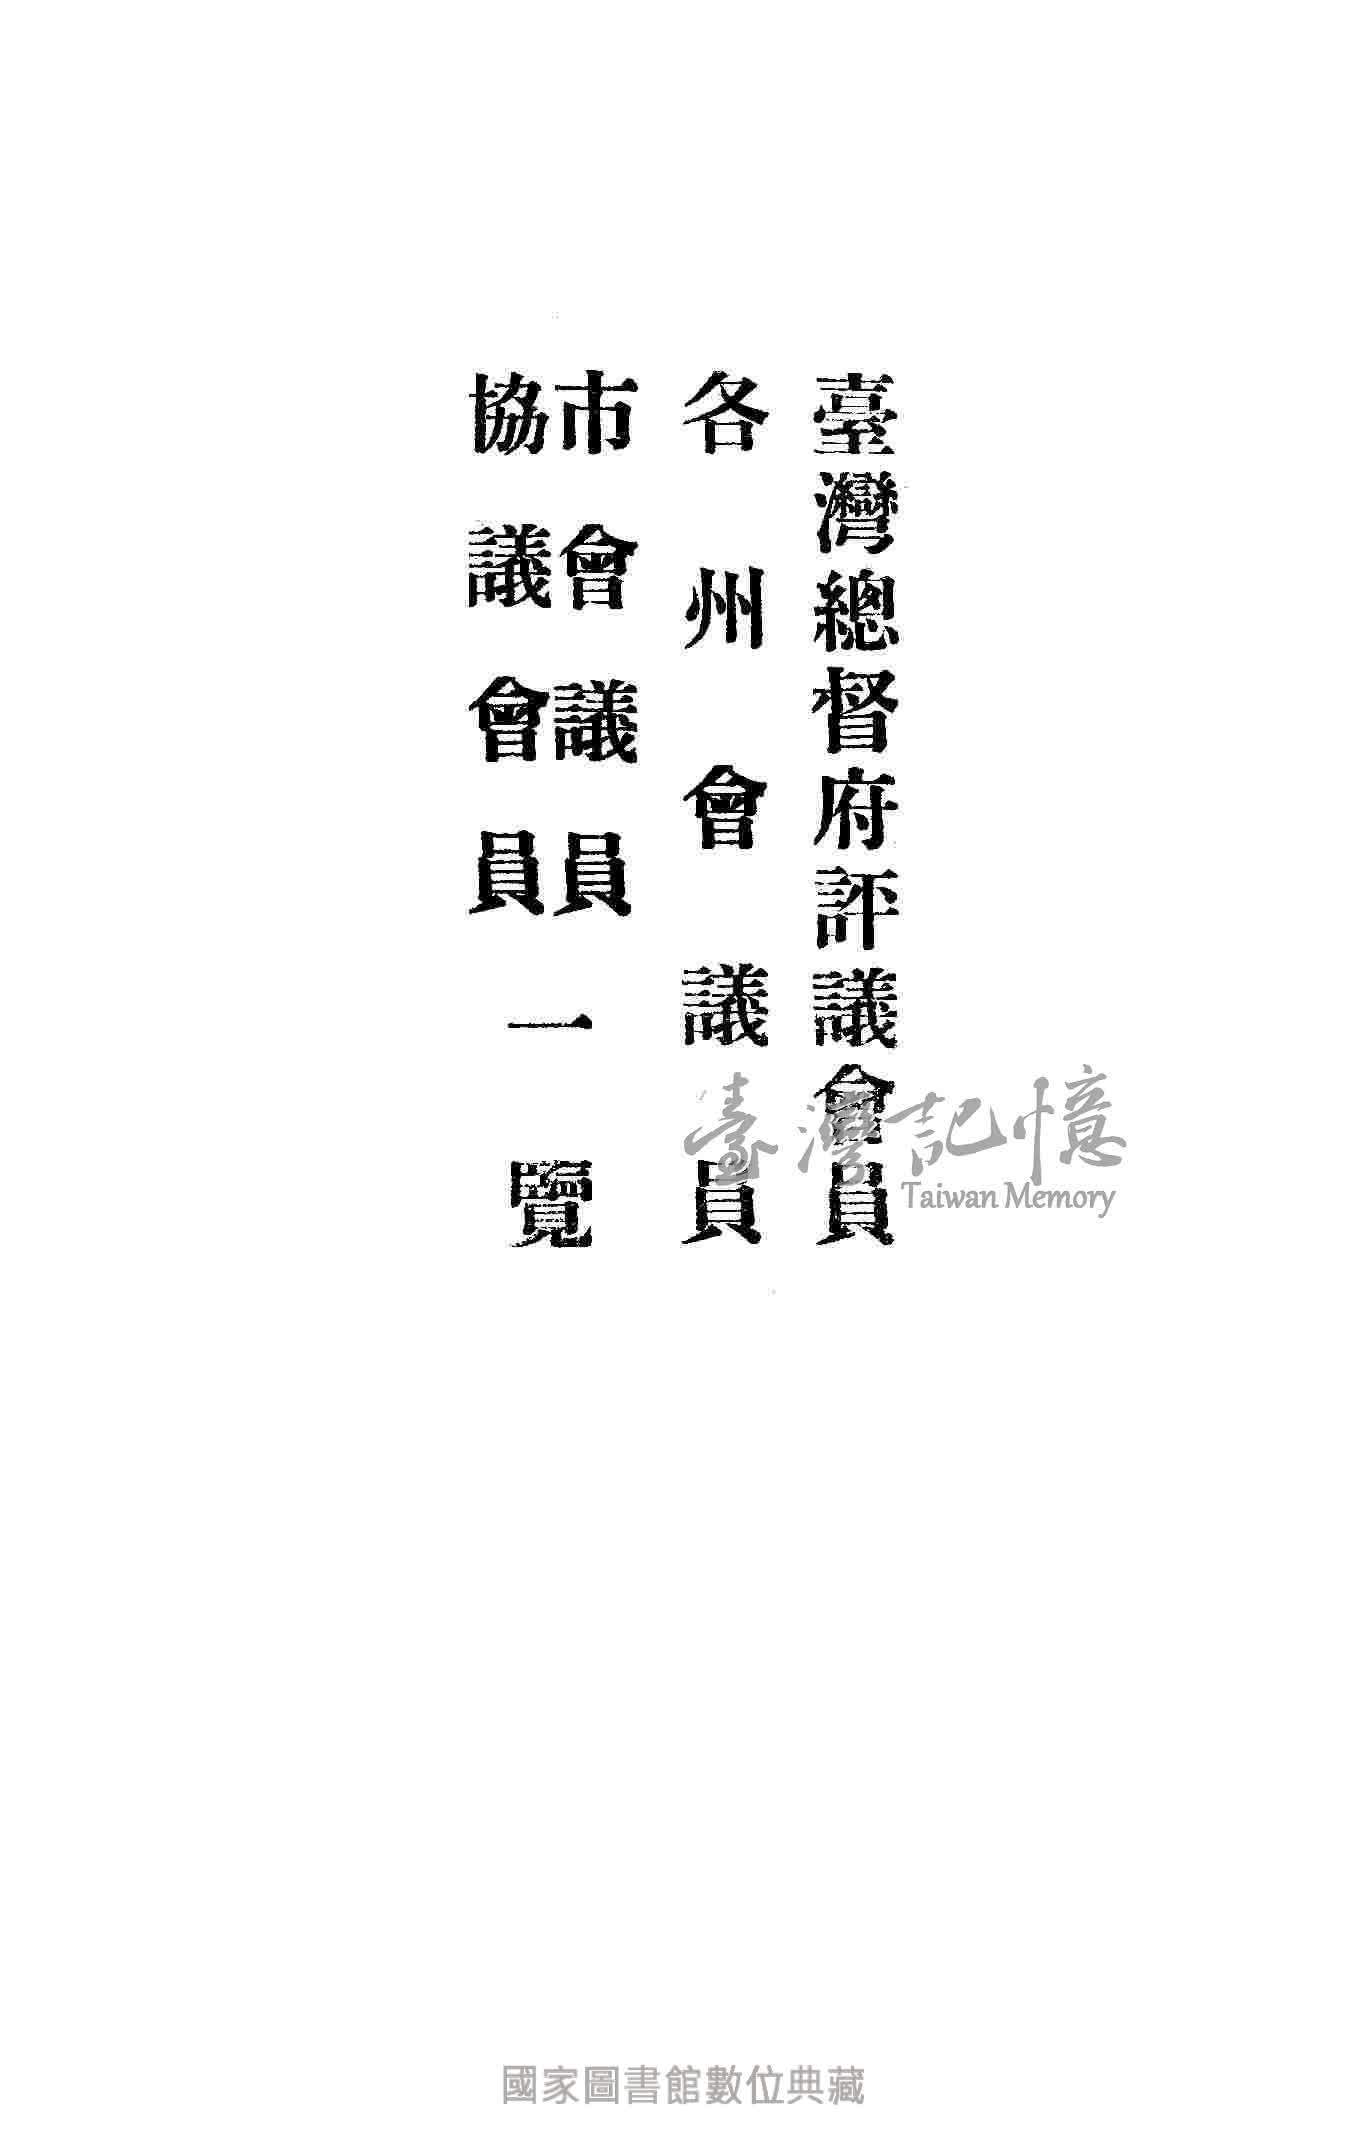 臺灣總督府評議會員
各州會議員
市會議員
協議會員
一覽
臺灣記憶
Taiwan Memory
國家圖書館數位典藏